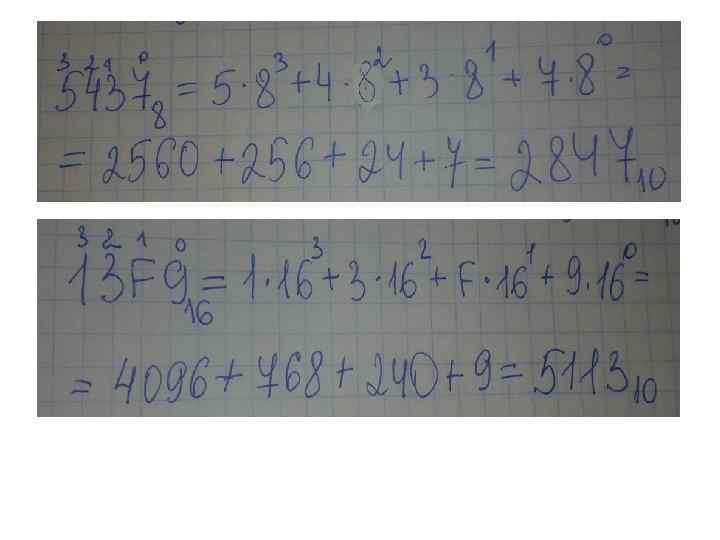 3 2 1 0
5437₈ = 5·8³ + 4·8² + 3·8¹ + 7·8⁰ =
= 2560 + 256 + 24 + 7 = 2847₁₀
3 2 1 0
13F9₁₆ = 1·16³ + 3·16² + F·16¹ + 9·16⁰ =
= 4096 + 768 + 240 + 9 = 5113₁₀